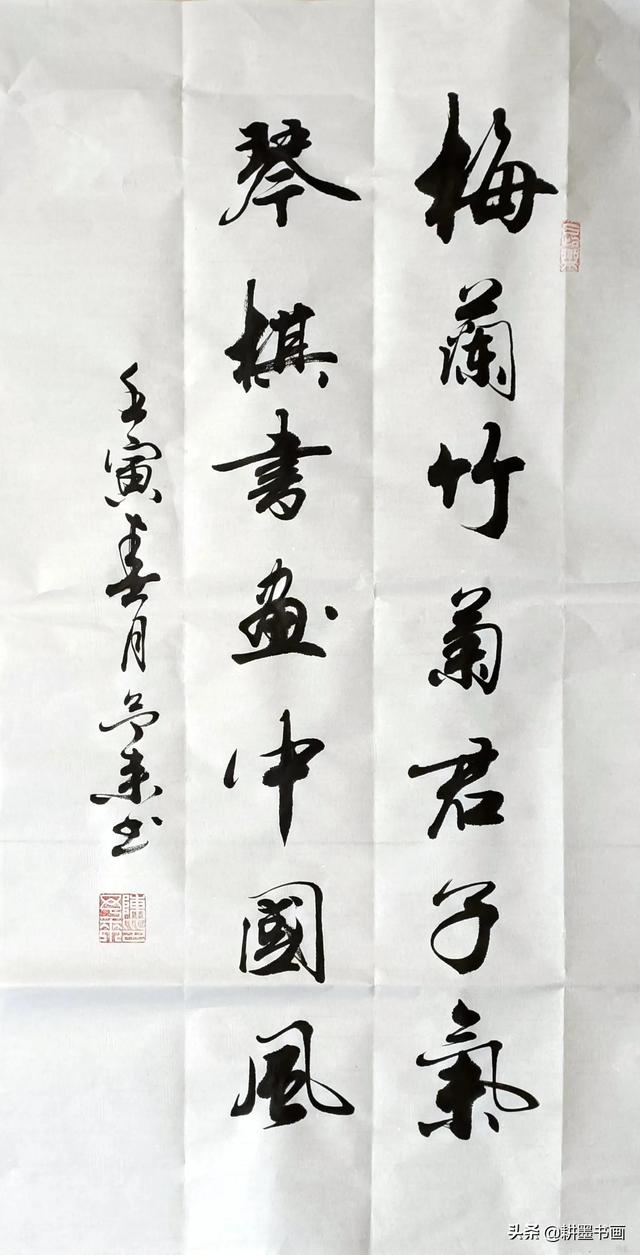 梅蘭竹菊君子氣
琴棋書畫中國風
壬寅春月
书
头条 @耕墨书画